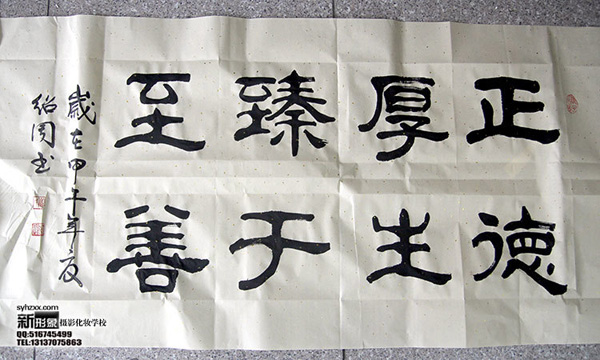 正德
厚生
臻于
至善
歲在甲午年夏
绍闵书
syhzxx.com
新形象摄影化妆学校
QQ:516745499
TEL:13137075863